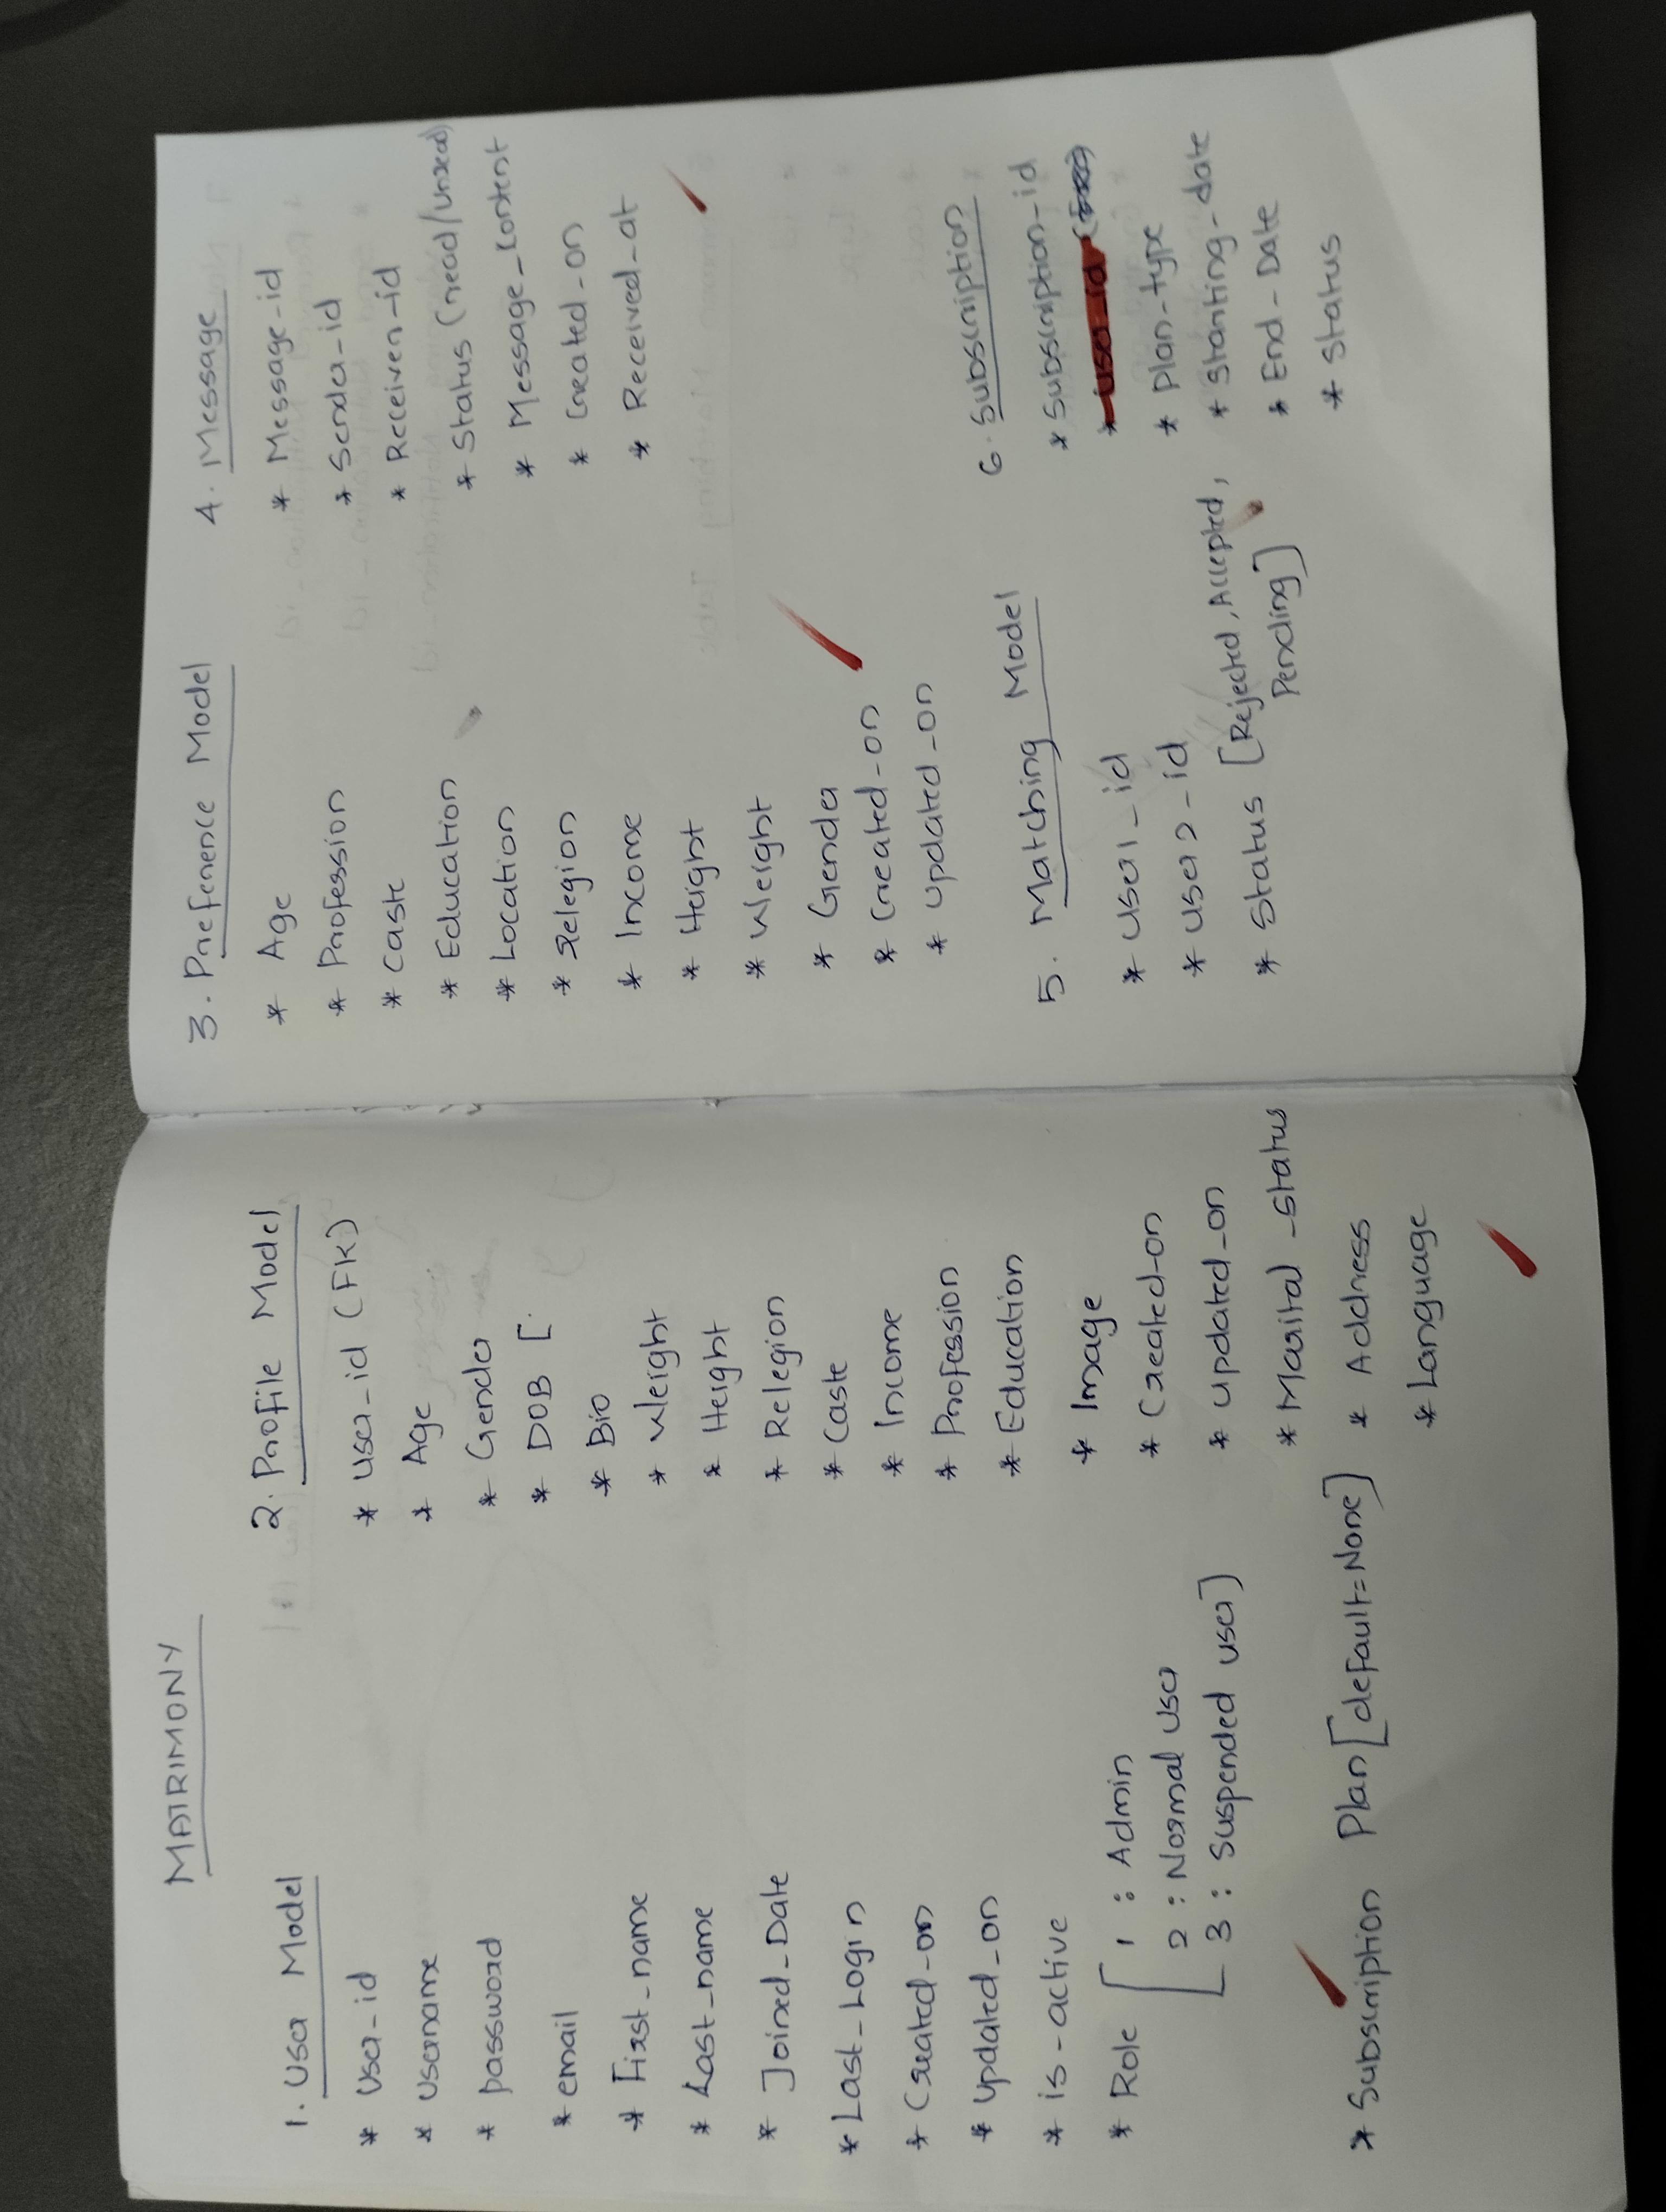 MATRIMONY
1. User Model
* User_id
* Username
* password
* email
* First_name
* Last_name
* Joined_Date
* Last_Login
* Created_on
* Updated_on
* is-active
* Role [ 1 : Admin
2 : Normal user
3 : Suspended user]
* Subscription Plan [default=None]
2. Profile Model
* user_id (FK)
* Age
* Gender
* DOB [.
* Bio
* Weight
* Height
* Relegion
* Caste
* Income
* Profession
* Education
* Image
* Created-on
* updated_on
* Marital_Status
* Address
* Language
3. Preference Model
* Age
* Profession
* Caste
* Education
* Location
* Relegion
* Income
* Height
* Weight
* Gender
* Created_on
* updated_on
4. Message
* Message-id
* Sender_id
* Receiver_id
* Status (read/unread)
* Message_Content
* Created_on
* Received_at
5. Matching Model
* User1_id
* User2_id
* Status [Rejected, Accepted,
Pending]
6. Subscription
* Subscription_id
* user_id
* Plan-type
* Starting-date
* End-Date
* Status